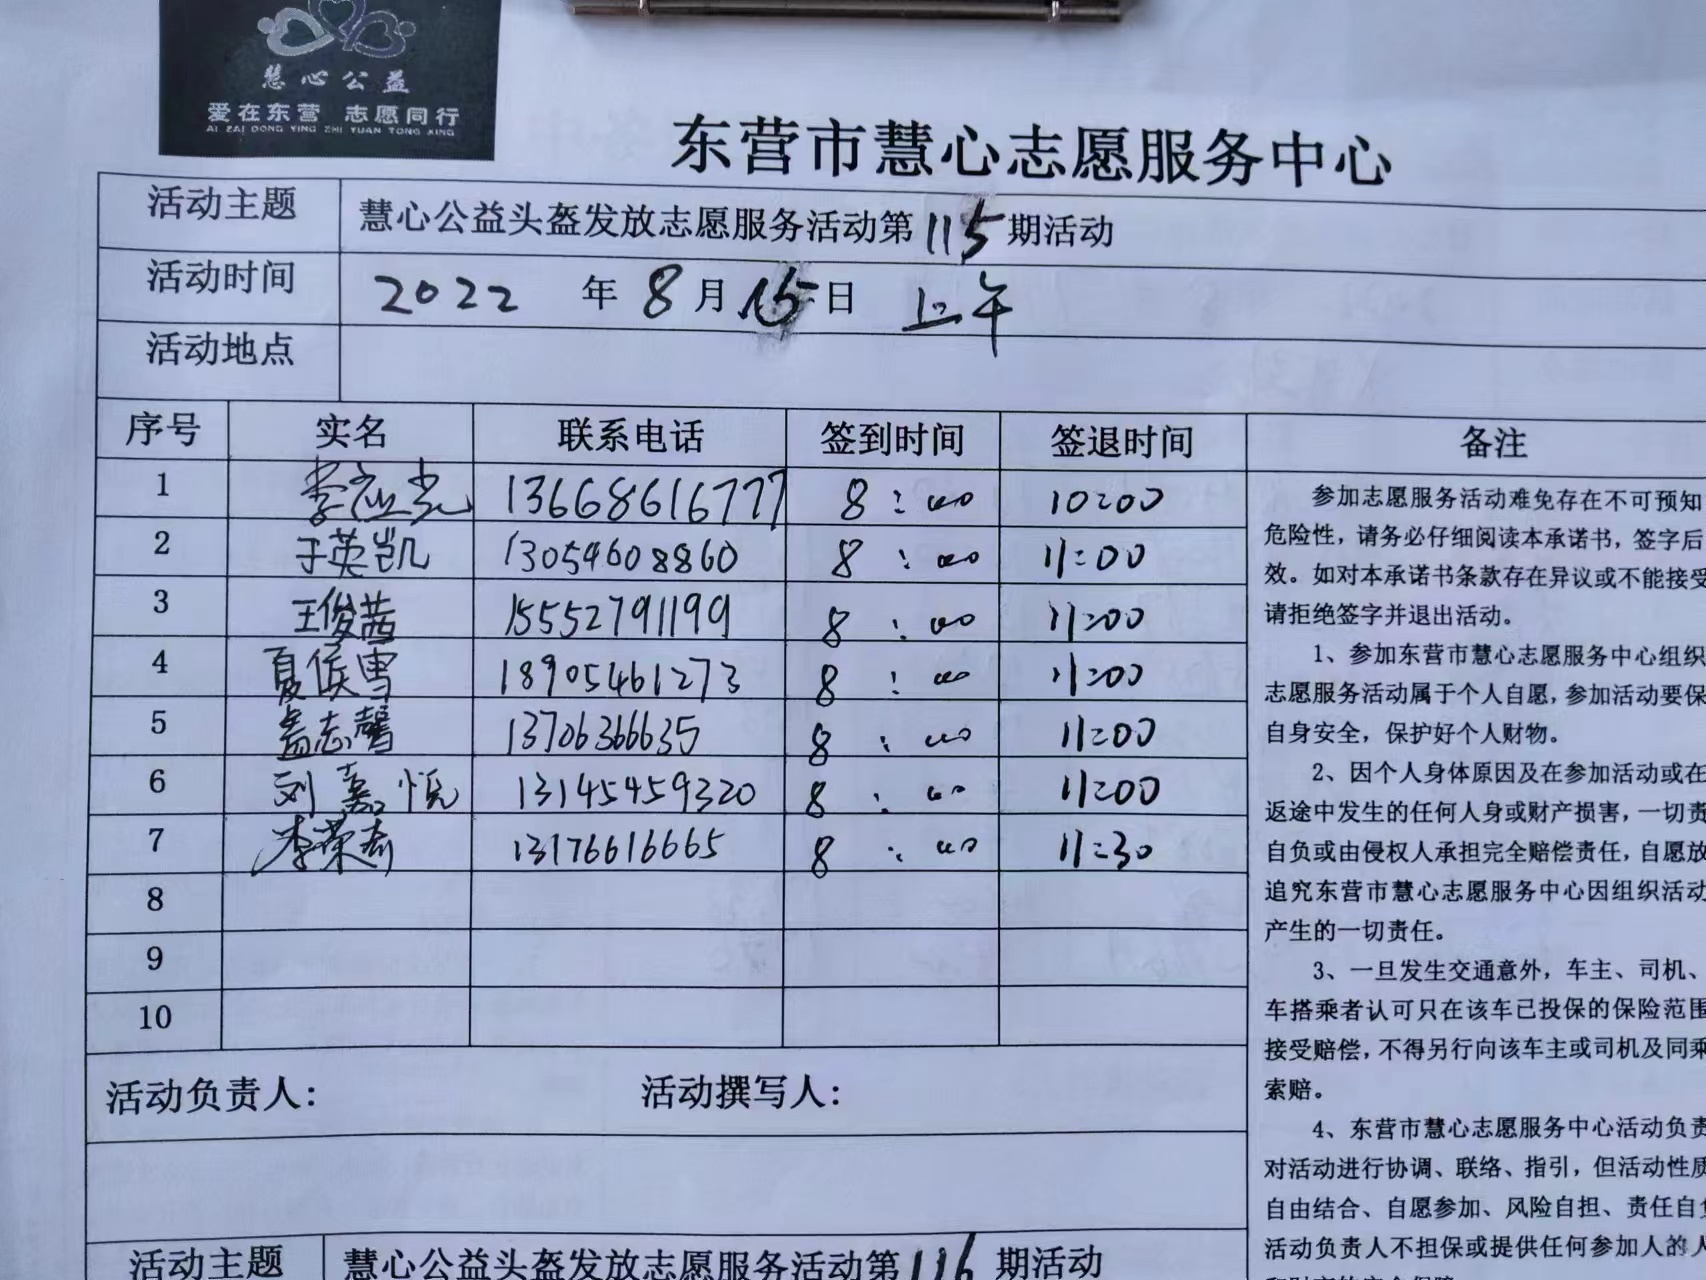 慧心公益
爱在东营 志愿同行
AI ZAI DONG YING ZHI YUAN TONG XING
东营市慧心志愿服务中心
活动主题 慧心公益头盔发放志愿服务活动第115期活动
活动时间 2022年8月15日 上午
活动地点
序号 实名 联系电话 签到时间 签退时间 备注
1 李应光 13668616777 8:00 10:00
2 于英凯 13054608860 8:00 11:00
3 王俊茜 15552791199 8:00 11:00
4 夏侯雪 18905461273 8:00 11:00
5 孟志馨 13706366635 8:00 11:00
6 刘嘉悦 13145459320 8:00 11:00
7 李荣 13176616665 8:00 11:30
8
9
10
参加志愿服务活动难免存在不可预知
危险性，请务必仔细阅读本承诺书，签字后
效。如对本承诺书条款存在异议或不能接受
请拒绝签字并退出活动。
1、参加东营市慧心志愿服务中心组织
志愿服务活动属于个人自愿，参加活动要保
自身安全，保护好个人财物。
2、因个人身体原因及在参加活动或在
返途中发生的任何人身或财产损害，一切责
自负或由侵权人承担完全赔偿责任，自愿放
追究东营市慧心志愿服务中心因组织活动
产生的一切责任。
3、一旦发生交通意外，车主、司机、
车搭乘者认可只在该车已投保的保险范围
接受赔偿，不得另行向该车主或司机及同乘
索赔。
4、东营市慧心志愿服务中心活动负责
对活动进行协调、联络、指引，但活动性质
自由结合、自愿参加、风险自担、责任自负
活动负责人不担保或提供任何参加人的人
活动负责人： 活动撰写人：
活动主题 慧心公益头盔发放志愿服务活动第116期活动